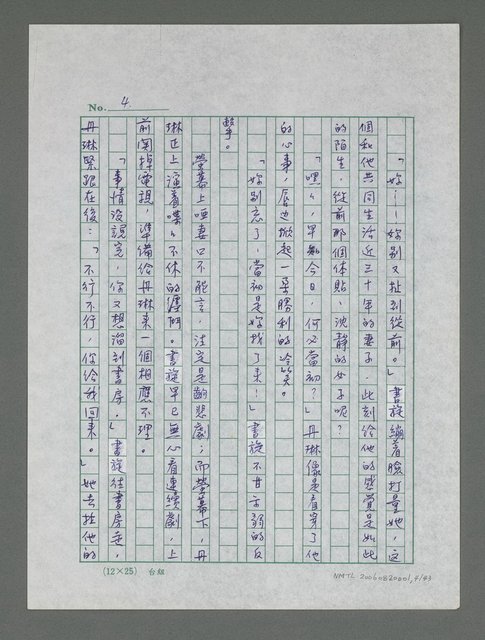 No. 4.
「妳……妳別又扯到從前。」書旋繃着臉打量她，這
個和他共同生活近三十年的妻子，此刻給他的感覺是如此
的陌生，從前那個体貼、沈静的女子呢？
「嘿嘿，早知今日，何必當初？」丹琳像是看穿了他
的心事，唇边掀起一朵勝利的冷笑。
「妳别忘了，當初是妳找了來！」書旋不甘示弱的反
擊。
螢幕上啞妻口不能言，注定是齣悲劇；而螢幕下，丹
琳正上演着喋喋不休的纏鬥。書旋早已無心看連續劇，上
前関掉電視，準備給丹琳來一個相應不理。
「事情没説完，你又想溜到書房。」書旋往書房走，
丹琳緊跟在後：「不行不行，你給我回來。」她去拉他的
(12×25) 台組
NMTL 20060820001,4/43